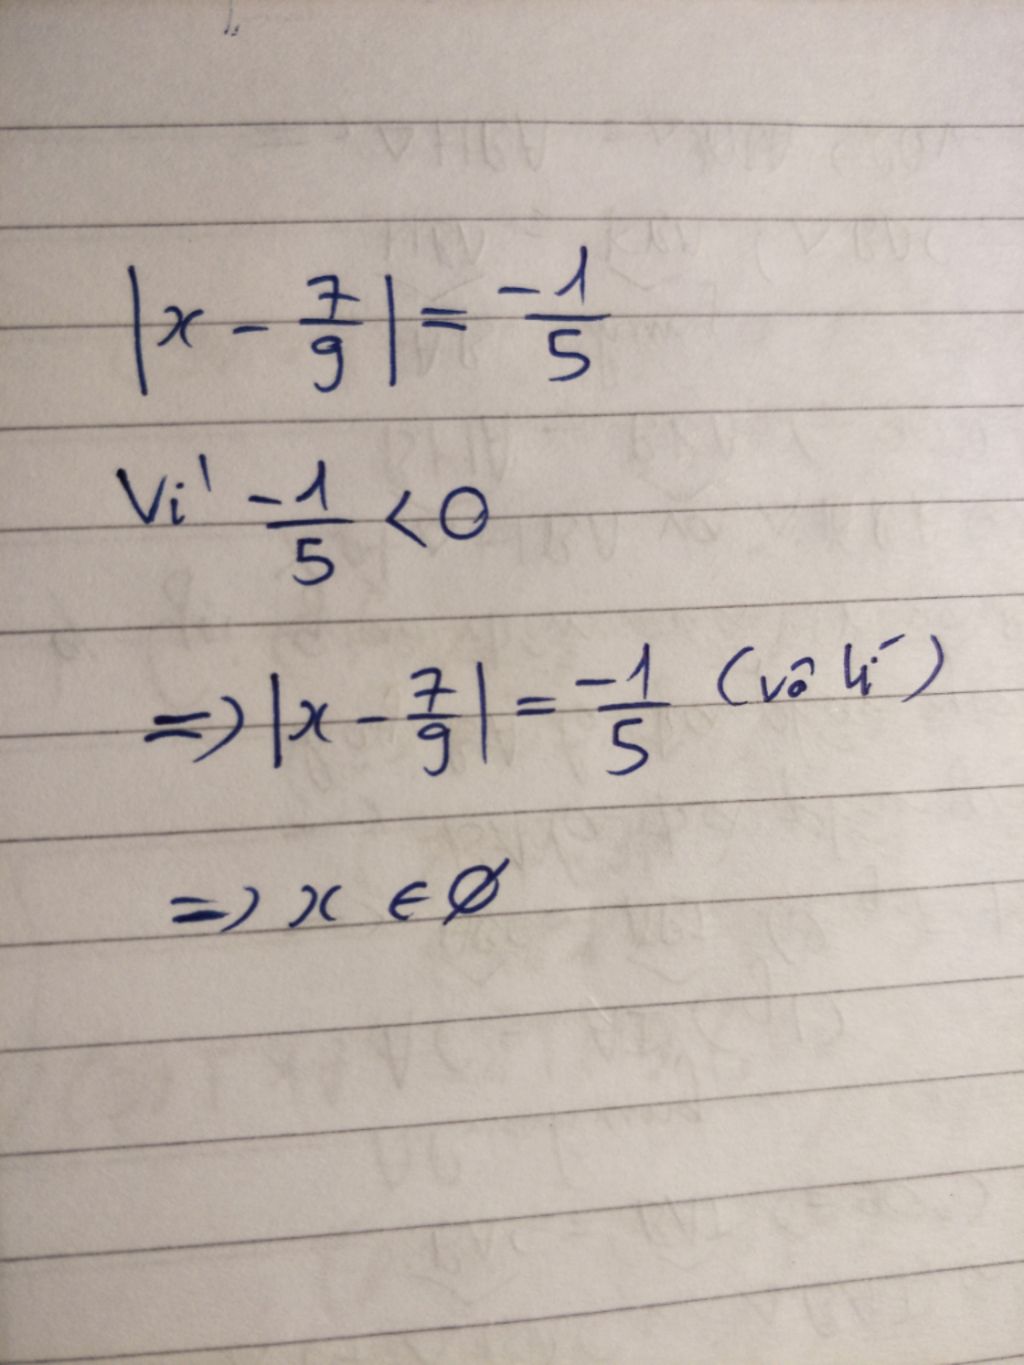 |x - 7/9| = -1/5
Vì -1/5 < 0
=> |x - 7/9| = -1/5 (vô lí)
=> x ∈ ∅